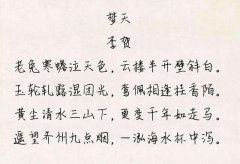 梦天
李贺
老兔寒蟾泣天色，云楼半开壁斜白。
玉轮轧露湿团光，鸾佩相逢桂香陌。
黄尘清水三山下，更变千年如走马。
遥望齐州九点烟，一泓海水杯中泻。